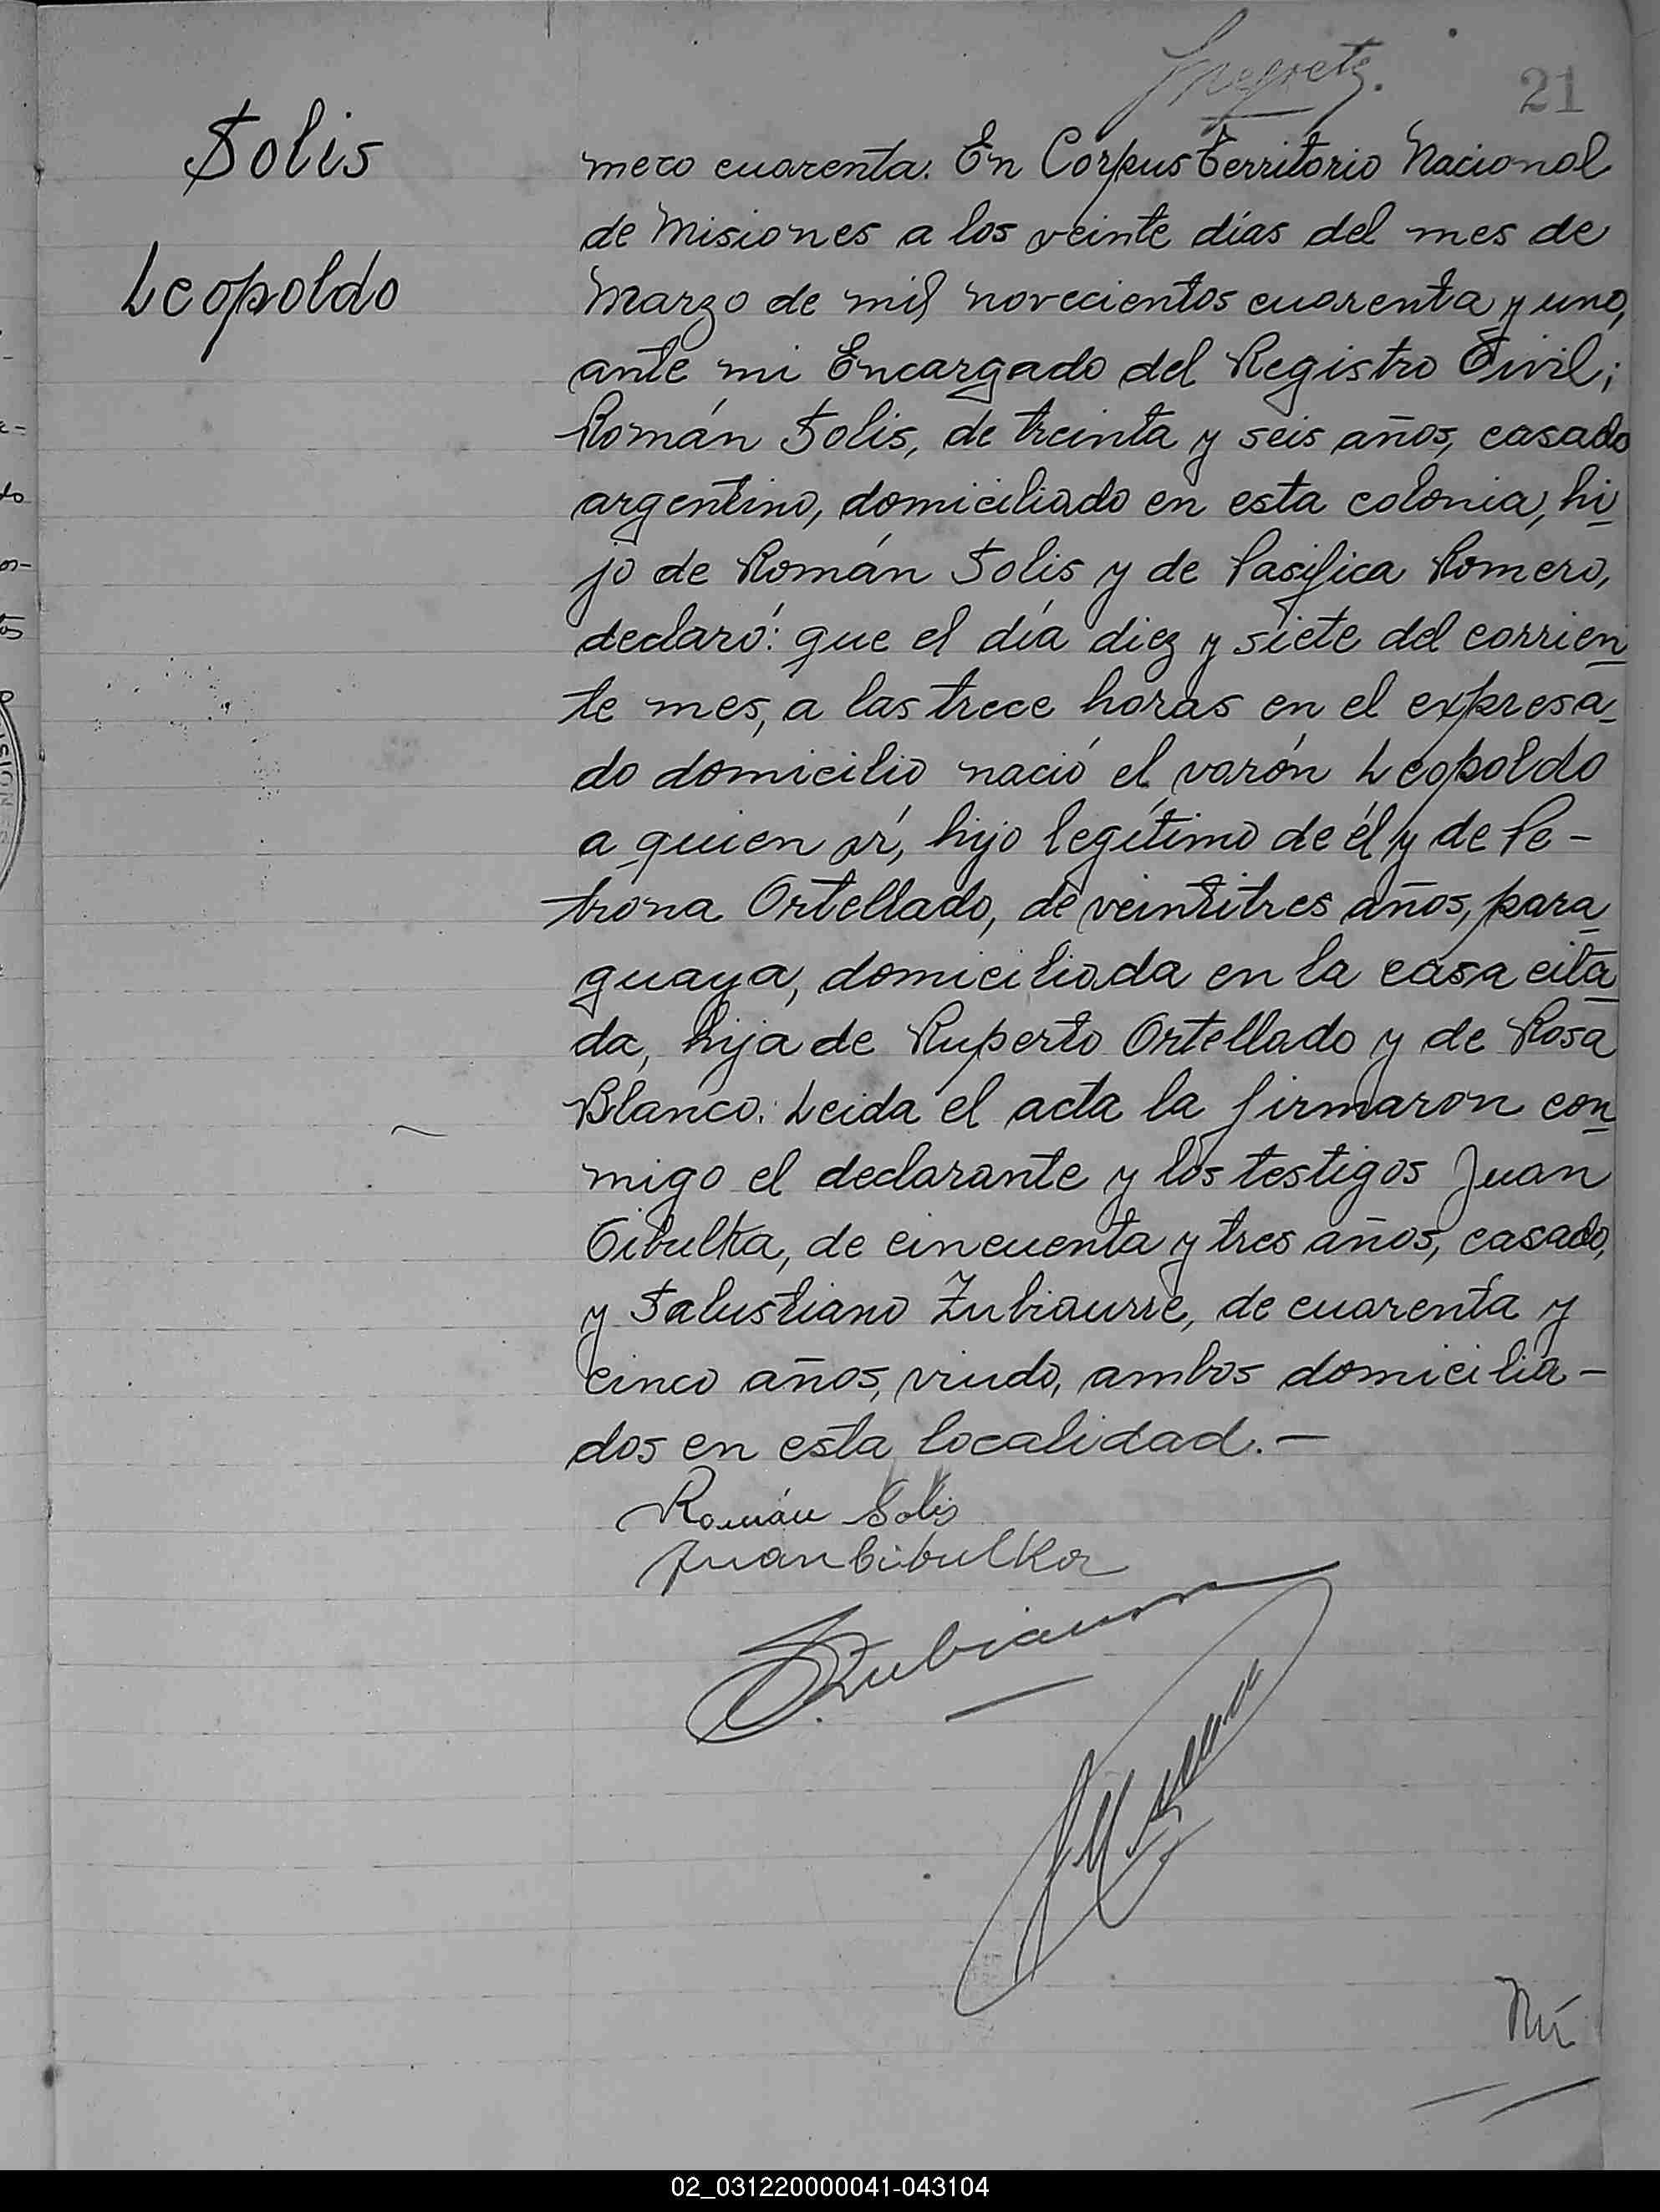 21
Solis
Leopoldo
mero cuarenta. En Corpus Territorio Nacional
de Misiones a los veinte días del mes de
Marzo de mil novecientos cuarenta y uno,
ante mi Encargado del Registro Civil;
Román Solis, de treinta y seis años, casado
argentino, domiciliado en esta colonia, hi
jo de Román Solis y de Pasifica Romero,
declaró: que el día diez y siete del corrien
te mes, a las trece horas en el expresa-
do domicilio nació el varón Leopoldo
a quien ví, hijo legítimo de él y de Pe-
trona Ortellado, de veintitres años, para
guaya, domiciliada en la casa cita
da, hija de Ruperto Ortellado y de Rosa
Blanco. Leida el acta la firmaron con
migo el declarante y los testigos Juan
Cibulka, de cincuenta y tres años, casado,
y Salustiano Zubiaurre, de cuarenta y
cinco años, viudo, ambos domicilia-
dos en esta localidad.-
Román Solis
Juan Cibulka
Nú
02_031220000041-043104